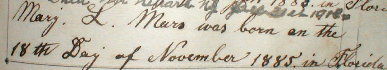 Mary. L. Mars was born on the
18th Day of November 1885. in Florida